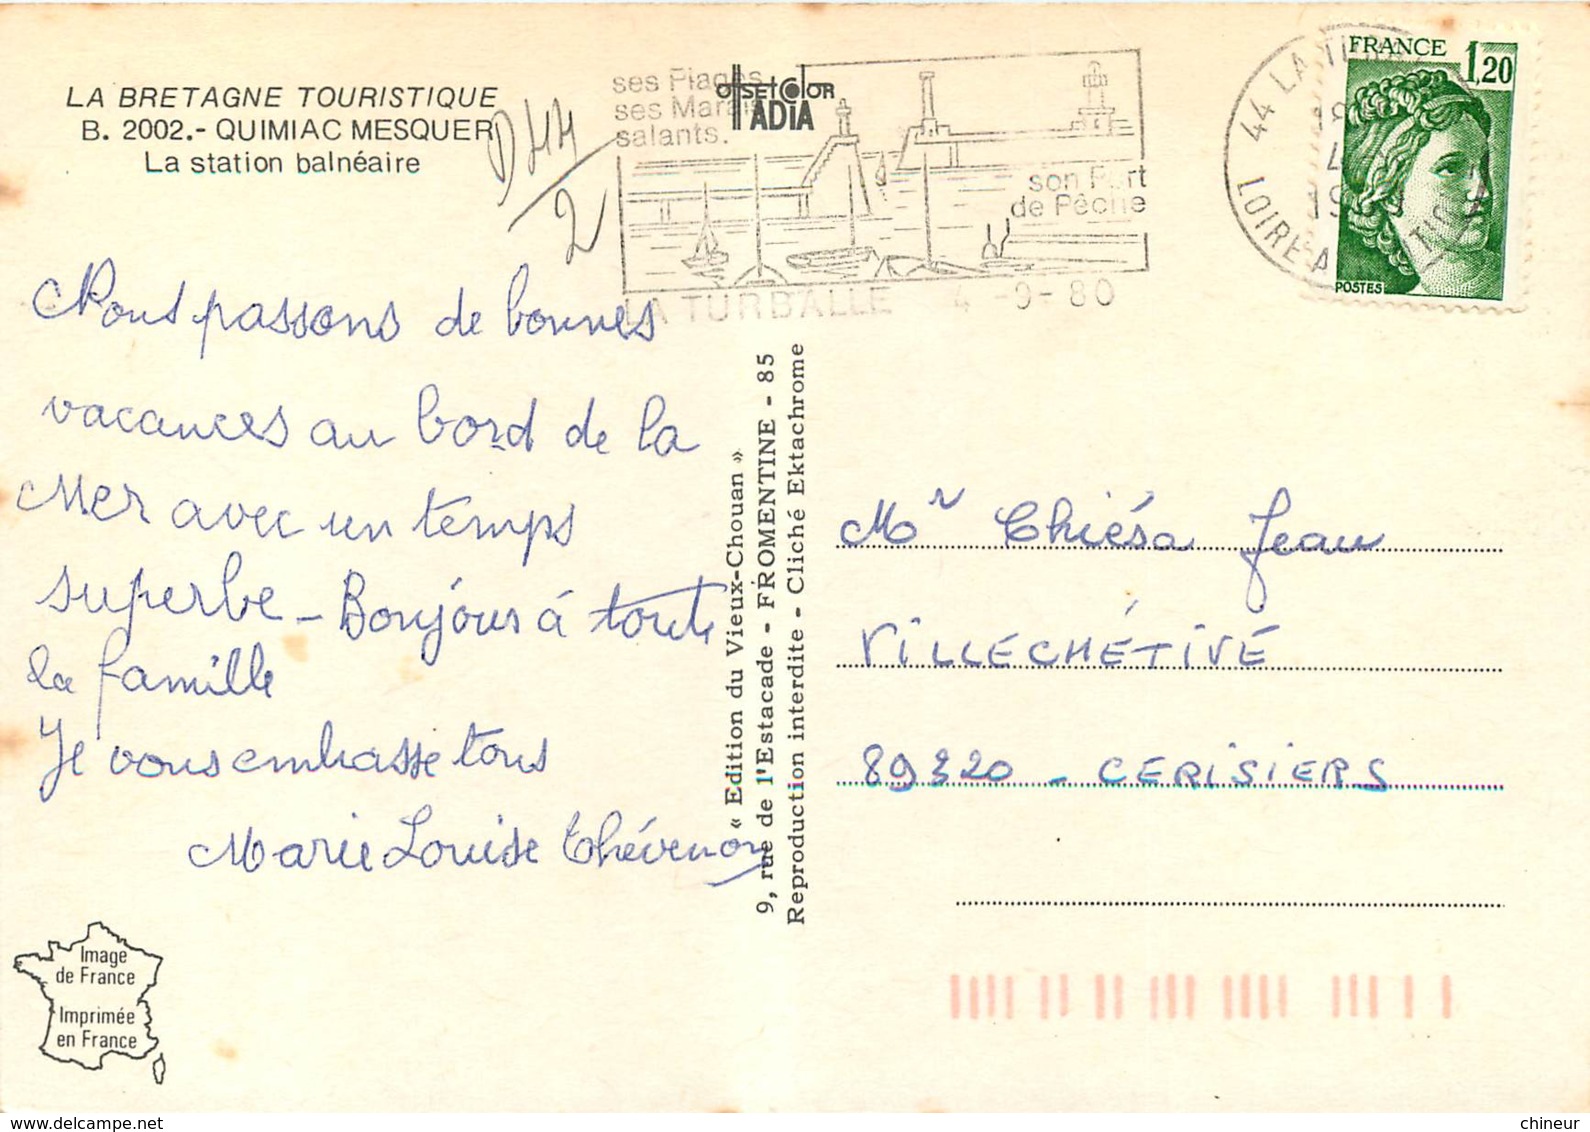 LA BRETAGNE TOURISTIQUE
B. 2002.- QUIMIAC MESQUER
La station balnéaire
D44/2
ses Plages
ses Marais
salants.
OffSET COLOR
IADIA
son Port
de Pêche
LA TURBALLE 4 -9- 80
44 LA TURBALLE
LOIRE-A
FRANCE 1,20
POSTES
Nous passons de bonnes
vacances au bord de la
Mer avec un temps
superbe - Bonjour à toute
la famille
Je vous embrasse tous
Marie Louise Thévenon
« Edition du Vieux-Chouan »
9, rue de l'Estacade - FROMENTINE - 85
Reproduction interdite - Cliché Ektachrome
Mr Chiésa Jean
VILLECHÉTIVE
89320 - CERISIERS
Image
de France
Imprimée
en France
delcampe.net
chineur